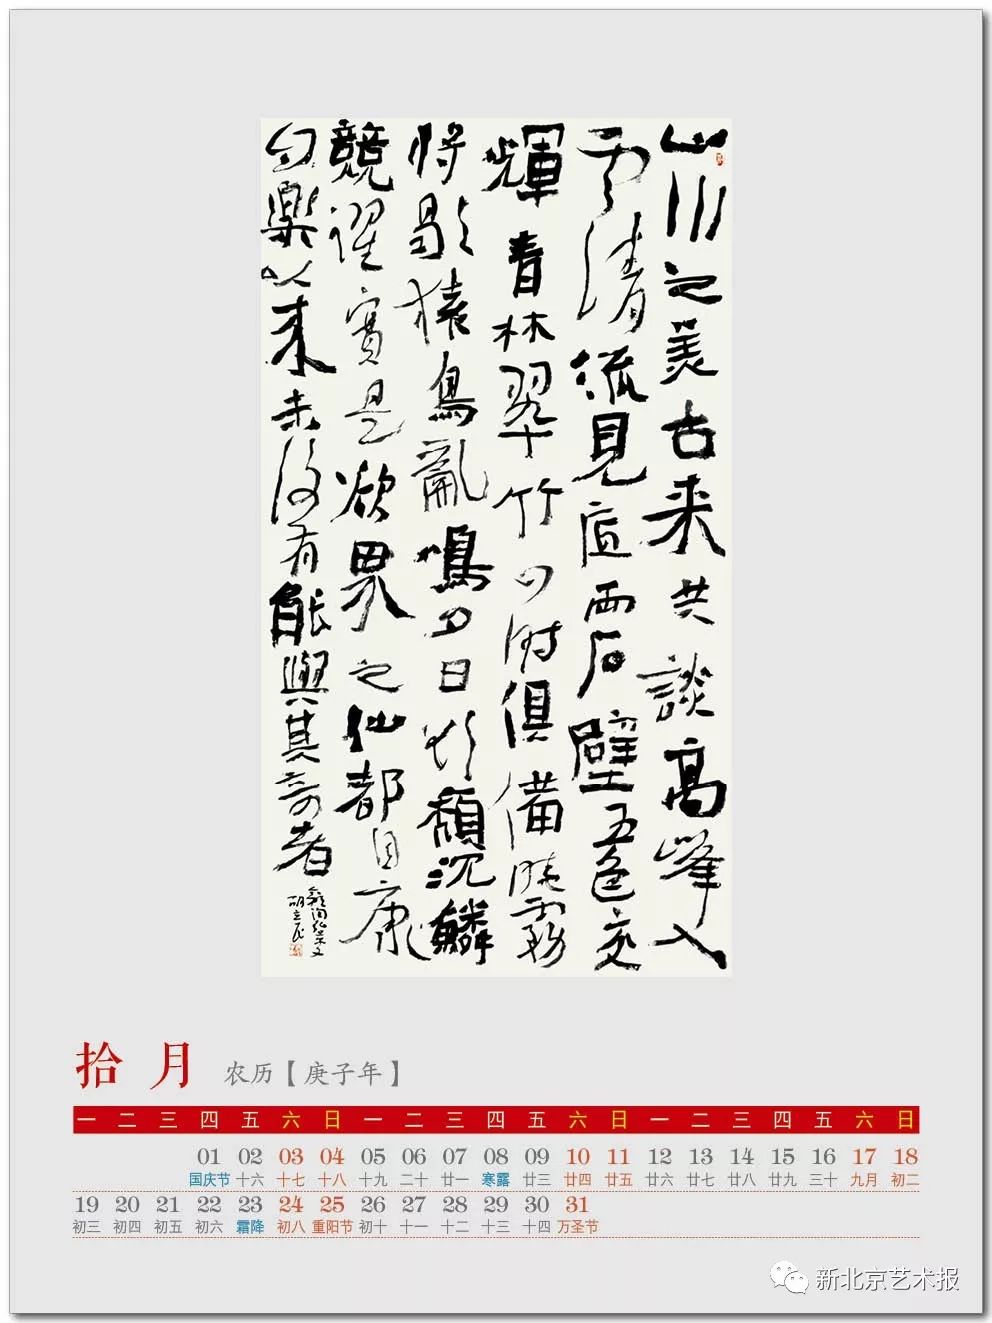 山川之美古来共談高峰入
雲清流見底两石壁五色交
輝青林翠竹四时俱備晓霧
将歇猿鳥亂鳴夕日欲頹沉鱗
競躍實是欲界之仙都自康
樂以来未復有能與其奇者
胡立民
拾月 农历【庚子年】
一 二 三 四 五 六 日 一 二 三 四 五 六 日 一 二 三 四 五 六 日
01 02 03 04 05 06 07 08 09 10 11 12 13 14 15 16 17 18
国庆节 十六 十七 十八 十九 二十 廿一 寒露 廿三 廿四 廿五 廿六 廿七 廿八 廿九 三十 九月 初二
19 20 21 22 23 24 25 26 27 28 29 30 31
初三 初四 初五 初六 霜降 初八 重阳节 初十 十一 十二 十三 十四 万圣节
新北京艺术报